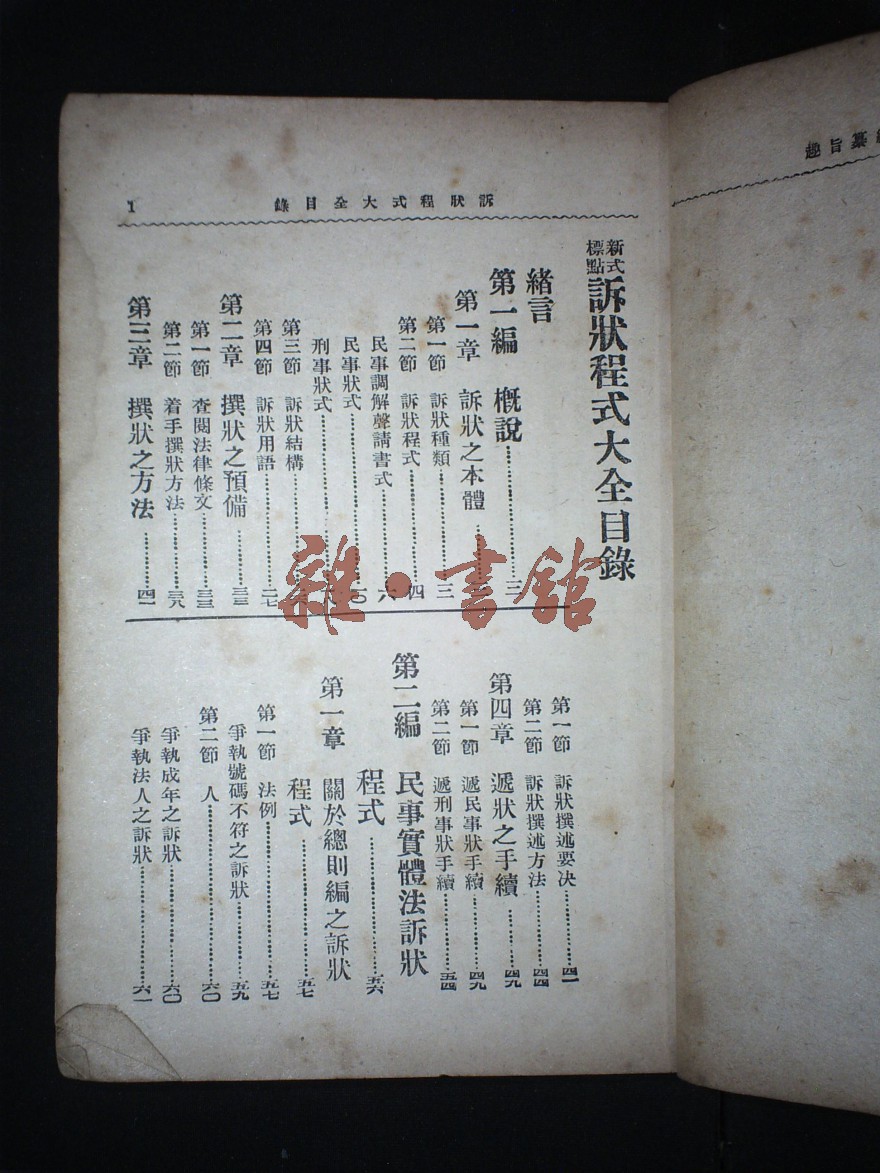 訴狀程式大全目錄
1
纂旨趣
新式標點訴狀程式大全目錄
緒言
第一編 概說……三
第一章 訴狀之本體
第一節 訴狀種類……三
第二節 訴狀程式……四
民事調解聲請書式……六
民事狀式
刑事狀式
第三節 訴狀結構
第四節 訴狀用語……二七
第二章 撰狀之預備……三三
第一節 查閱法律條文……三三
第二節 着手撰狀方法……三八
第三章 撰狀之方法……四一
第一節 訴狀撰述要決……四一
第二節 訴狀撰述方法……四四
第四章 遞狀之手續……四九
第一節 遞民事狀手續……四九
第二節 遞刑事狀手續……五四
第二編 民事實體法訴狀
程式……五六
第一章 關於總則編之訴狀
程式……五七
第一節 法例……五七
爭執號碼不符之訴狀……五九
第二節 人……六〇
爭執成年之訴狀……六〇
爭執法人之訴狀……六一
雜·書館